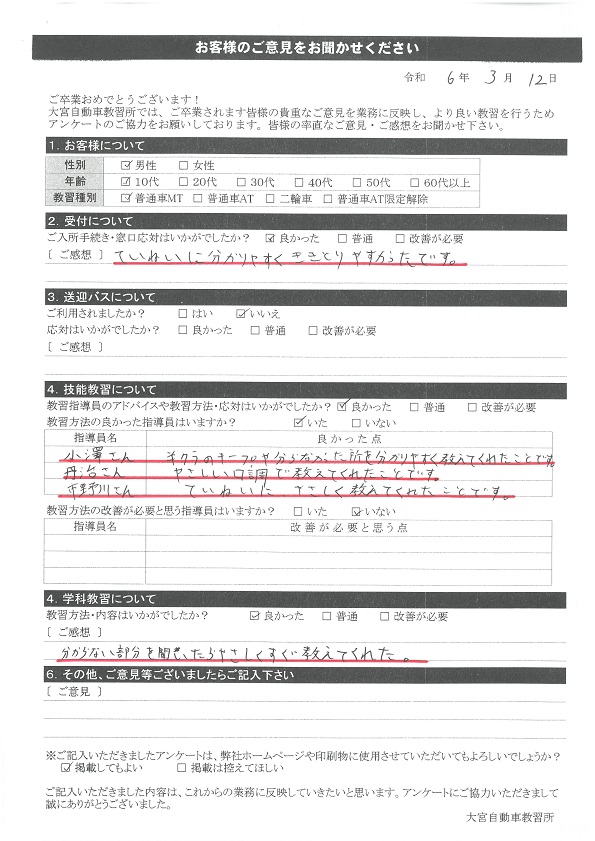 お客様のご意見をお聞かせください
令和 6年 3月 12日
ご卒業おめでとうございます！
大宮自動車教習所では、ご卒業されます皆様の貴重なご意見を業務に反映し、より良い教習を行うため
アンケートのご協力をお願いしております。皆様の率直なご意見・ご感想をお聞かせ下さい。
1. お客様について
性別 ☑ 男性 □ 女性
年齢 ☑ 10代 □ 20代 □ 30代 □ 40代 □ 50代 □ 60代以上
教習種別 ☑ 普通車MT □ 普通車AT □ 二輪車 □ 普通車AT限定解除
2. 受付について
ご入所手続き・窓口応対はいかがでしたか？ ☑ 良かった □ 普通 □ 改善が必要
〔 ご感想 〕 ていねいに分かりやすくききとりやすかったです。
3. 送迎バスについて
ご利用されましたか？ □ はい ☑ いいえ
応対はいかがでしたか？ □ 良かった □ 普通 □ 改善が必要
〔 ご感想 〕
4. 技能教習について
教習指導員のアドバイスや教習方法・応対はいかがでしたか？ ☑ 良かった □ 普通 □ 改善が必要
教習方法の良かった指導員はいますか？ ☑ いた □ いない
指導員名 良かった点
小澤さん キクラのキープや分からなかった所を分かりやすく教えてくれたことです。
丹治さん やさしい口調で教えてくれたことです。
市野川さん ていねいに やさしく教えてくれたことです。
教習方法の改善が必要と思う指導員はいますか？ □ いた ☑ いない
指導員名 改善が必要と思う点
4. 学科教習について
教習方法・内容はいかがでしたか？ ☑ 良かった □ 普通 □ 改善が必要
〔 ご感想 〕
分からない部分を聞きいたらやさしくすぐ教えてくれた。
6. その他、ご意見等ございましたらご記入下さい
〔 ご意見 〕
※ご記入いただきましたアンケートは、弊社ホームページや印刷物に使用させていただいてもよろしいでしょうか？
☑ 掲載してもよい □ 掲載は控えてほしい
ご記入いただきました内容は、これからの業務に反映していきたいと思います。アンケートにご協力いただきまして
誠にありがとうございました。
大宮自動車教習所